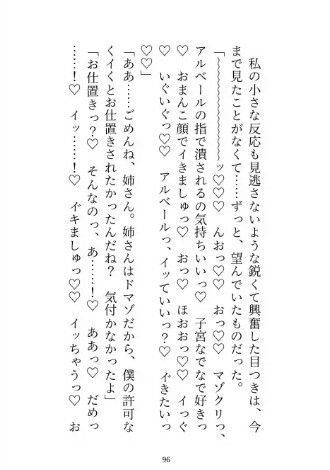 私の小さな反応も見逃さないような鋭くて興奮した目つきは、今
まで見たことがなくて……ずっと、望んでいたものだった。
「~~~~~~~~~~ッ♡♡♡　んおっ♡♡　おっ♡　マゾクリっ、
アルベールの指で潰されるの気持ちいいっ♡　子宮なでなで好きっ
♡　おまんこ顔でイきましゅっ♡　おっ♡　ほおおっ♡♡　イっぐ
♡　いぐいぐっ♡♡　アルベールっ、イッていいっ？♡　イ゛きたいっ
♡♡」
「ああ……ごめんね、姉さん。姉さんはドマゾだから、僕の許可な
くイくとお仕置きされたかったんだね？　気付かなかったよ」
「お仕置きっ？♡　そんなのっ、あ……！♡　ああっ♡　だめっ
……！♡　イッ……！♡　イ゛キましゅっ♡♡　イッちゃうっ♡　お
96